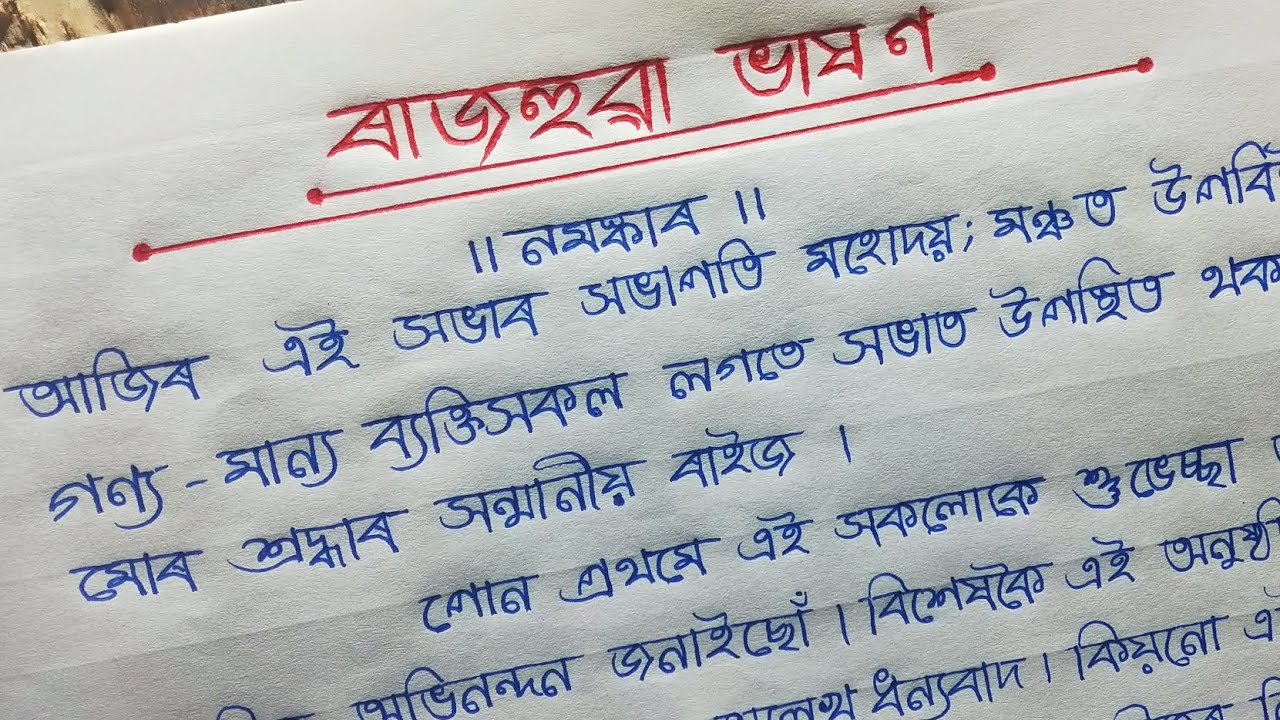 ৰাজহুৱা ভাষণ
॥ নমস্কাৰ ॥
আজিৰ এই সভাৰ সভাপতি মহোদয়; মঞ্চত
গণ্য - মান্য ব্যক্তিসকল লগতে সভাত উপস্থিত
মোৰ শ্ৰদ্ধাৰ সন্মানীয় ৰাইজ ।
পোন প্ৰথমে এই সকলোকে শুভেচ্ছা
অভিনন্দন জনাইছোঁ । বিশেষকৈ এই
ধন্যবাদ । কিয়নো